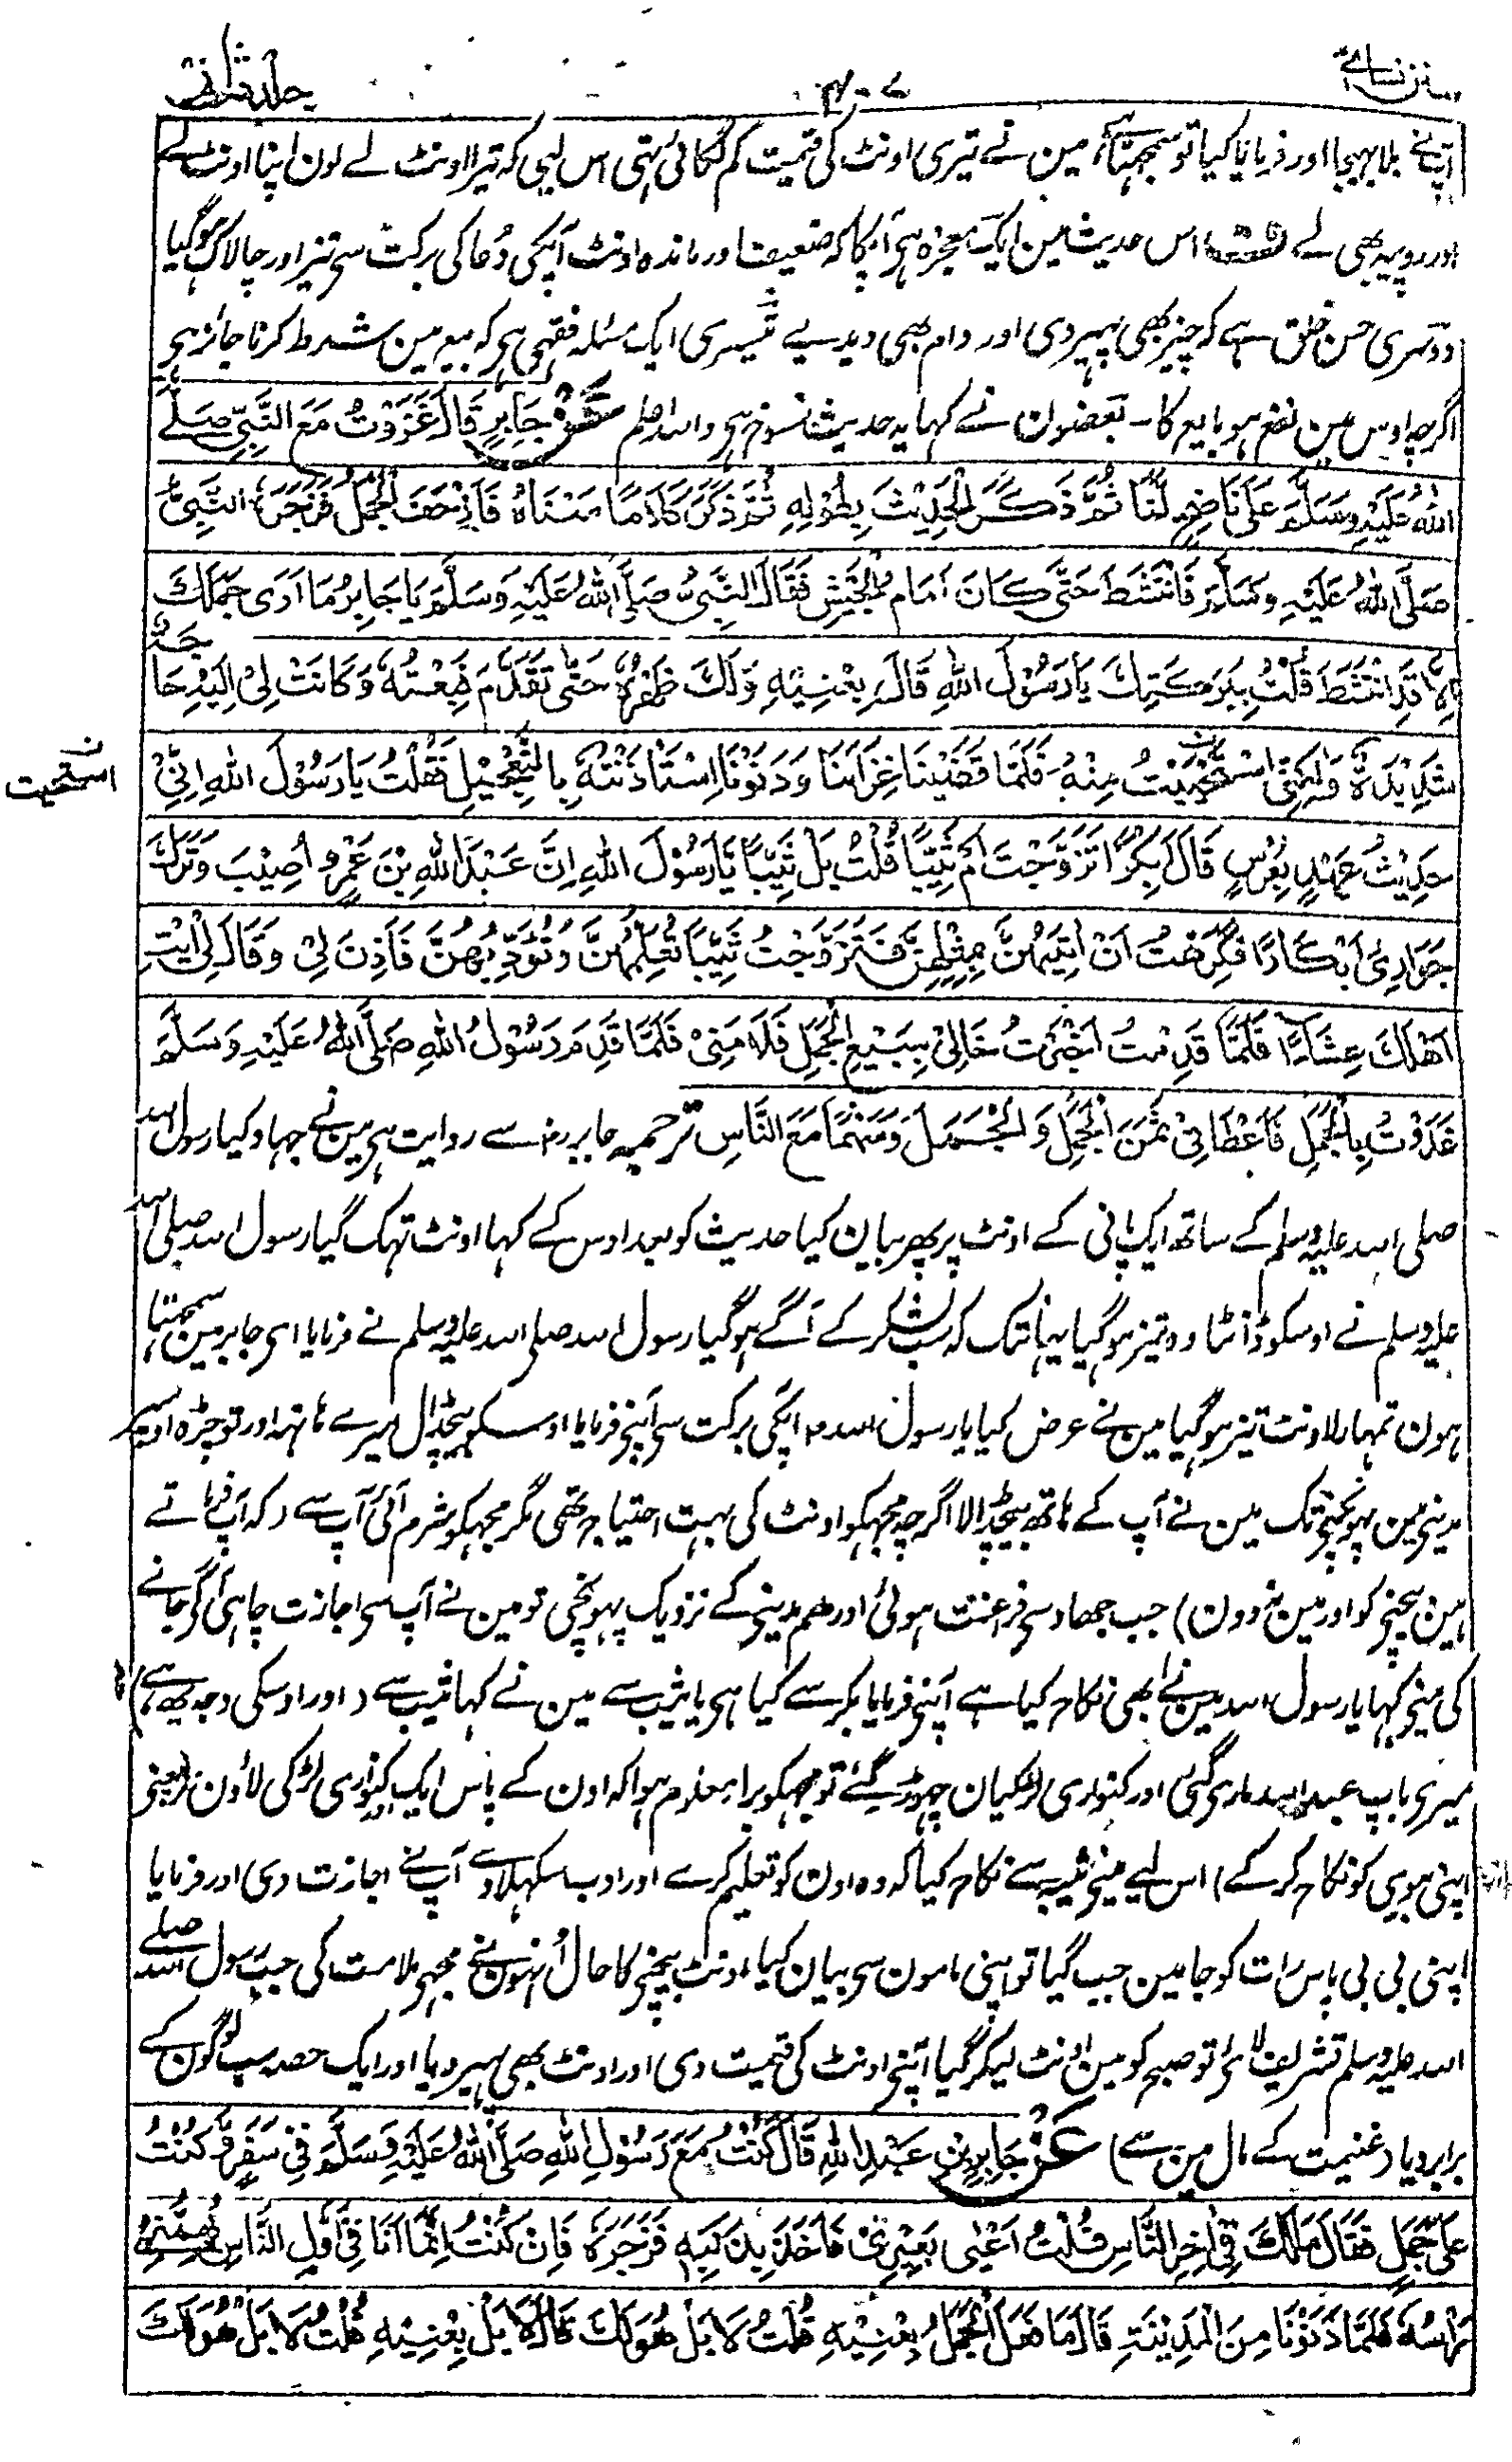 سنن نسائی
۴۰۷
جلد ثانی
آپنے بلا بہیجا اور فرمایا کیا تو سمجہتا ہے مین نے تیری اونٹ کی قیمت کم لگائی تہی اس لیی کہ تیرا اونٹ لے لون اپنا اونٹ لے
اور روپیہ بھی لے ف اس حدیث مین ایک معجزہ ہی آپکا کہ ضعیف اور ماندہ اونٹ آپکی دُعا کی برکت سی تیز اور چالاک ہو گیا
دوسری حسن خلق ہے کہ چیز بھی پہیر دی اور دام بھی دیدیے تیسری ایک مسئلہ فقہی ہی کہ بیع مین شرط کرنا جائز ہی
اگرچہ اوس مین نفع ہو بایع کا - بعضون نے کہا یہ حدیث منسوخ ہی واللہ اعلم عَنْ جَابِرٍ قَالَ غَزَوْتُ مَعَ النَّبِيِّ صَلَّى
اللهُ عَلَيْهِ وَسَلَّمَ عَلَى نَاضِحٍ لَنَا ثُمَّ ذَكَرَ الْحَدِيْثَ بِطُوْلِهِ ثُمَّ ذَكَرَ كَلَامًا مَعْنَاهُ فَاُزْحِفَ الْجَمَلُ فَزَجَرَهُ النَّبِيُّ
صَلَّى اللهُ عَلَيْهِ وَسَلَّمَ فَانْتَشَطَ حَتّٰى كَانَ اَمَامَ الْجَيْشِ فَقَالَ النَّبِيُّ صَلَّى اللهُ عَلَيْهِ وَسَلَّمَ يَا جَابِرُ مَا اَرٰى جَمَلَكَ
اِلَّا قَدِ انْتَشَطَ قُلْتُ بِبَرَكَتِكَ يَا رَسُوْلَ اللهِ قَالَ بِعْنِيْهِ وَلَكَ ظَهْرُهُ حَتّٰى تَقْدَمَ فَبِعْتُهُ وَكَانَتْ لِيْ اِلَيْهِ حَاجَةٌ
شَدِيْدَةٌ وَلٰكِنِّي اسْتَحْيَيْتُ مِنْهُ فَلَمَّا قَضَيْنَا غَزَاتَنَا وَدَنَوْنَا اسْتَأْذَنْتُهُ بِالتَّعْجِيْلِ فَقُلْتُ يَا رَسُوْلَ اللهِ اِنِّيْ
استحیت
حَدِيْثُ عَهْدٍ بِعُرْسٍ قَالَ اَبِكْرًا تَزَوَّجْتَ اَمْ ثَيِّبًا قُلْتُ بَلْ ثَيِّبًا يَا رَسُوْلَ اللهِ اِنَّ عَبْدَ اللهِ بْنَ عَمْرٍو اُصِيْبَ وَتَرَكَ
جَوَارِيَ اَبْكَارًا فَكَرِهْتُ اَنْ اٰتِيَهُنَّ بِمِثْلِهِنَّ فَتَزَوَّجْتُ ثَيِّبًا تُعَلِّمُهُنَّ وَتُؤَدِّبُهُنَّ فَاَذِنَ لِيْ وَقَالَ لِي ائْتِ
اَهْلَكَ عِشَاءً فَلَمَّا قَدِمْتُ اَخْبَرْتُ خَالِيْ بِبَيْعِ الْجَمَلِ فَلَامَنِيْ فَلَمَّا قَدِمَ رَسُوْلُ اللهِ صَلَّى اللهُ عَلَيْهِ وَسَلَّمَ
غَدَوْتُ بِالْجَمَلِ فَاَعْطَانِيْ ثَمَنَ الْجَمَلِ وَالْجَمَلَ وَسَهْمًا مَعَ النَّاسِ ترجمہ جابر رض سے روایت ہی مین نے جہاد کیا رسول اللہ
صلی اللہ علیہ وسلم کے ساتھ ایک پانی کے اونٹ پر پھر بیان کیا حدیث کو بعد اوس کے کہا اونٹ تہک گیا رسول اللہ صلی اللہ
علیہ وسلم نے اوسکو ڈانٹا وہ تیز ہو گیا یہانتک کہ سب لشکر کے آگے ہو گیا رسول اللہ صلی اللہ علیہ وسلم نے فرمایا ای جابر مین سمجہتا
ہون تمہارا اونٹ تیز ہو گیا مین نے عرض کیا یا رسول اللہ آپکی برکت سی آپنے فرمایا اوسکو بیچڈال میرے ہاتہہ اور تو چڑہ اوسپر
مدینی مین پہونچنی تک مین نے آپ کے ہاتھ بیچڈالا اگرچہ مجہکو اونٹ کی بہت احتیاج تھی مگر مجہکو شرم آئی آپ سے (کہ آپ فرماتے
ہین بیچنی کو اور مین نہ دون) جب جہاد سی فراغت ہوئی اور ہم مدینی کے نزدیک پہونچی تو مین نے آپ سی اجازت چاہی آگے جانے
کی مینی کہا یا رسول اللہ مین نے ابھی نکاح کیا ہے آپنی فرمایا بکر سے کیا ہی یا ثیب سے مین نے کہا ثیب سے (اور اوسکی وجہ یہہ ہے)
میری باپ عبداللہ ماری گئی اور کنواری لڑکیان چہوڑ گئے تو مجہکو برا معلوم ہوا کہ اون کے پاس ایک کنواری لڑکی لاؤن (یعنی
اپنی بیوی کو نکاح کر کے) اس لیے مینی ثیبہ سے نکاح کیا کہ وہ اون کو تعلیم کرے اور ادب سکہلاوے آپ نے اجازت دی اور فرمایا
اپنی بی بی پاس رات کو جا مین جب گیا تو اپنی مامون سی بیان کیا اونٹ بیچنی کا حال اُنہون نے مجہی ملامت کی جب رسول اللہ صلے
اللہ علیہ وسلم تشریف لائی تو صبح کو مین اونٹ لیکر گیا آپنی اونٹ کی قیمت دی اور اونٹ بھی پہیر دیا اور ایک حصہ سب لوگون کے
برابر دیا (غنیمت کے مال مین سے) عَنْ جَابِرِ بْنِ عَبْدِ اللهِ قَالَ كُنْتُ مَعَ رَسُوْلِ اللهِ صَلَّى اللهُ عَلَيْهِ وَسَلَّمَ فِيْ سَفَرٍ وَكُنْتُ
عَلٰى جَمَلٍ فَقَالَ مَالَكَ فِيْ اٰخِرِ النَّاسِ قُلْتُ اَعْيٰى بَعِيْرِيْ فَاَخَذَ بِذَنَبِهِ فَزَجَرَهُ فَاِنْ كُنْتُ اِنَّمَا اَنَا فِيْ اَوَّلِ النَّاسِ يُهِمُّنِيْ
رَاْسُهُ فَلَمَّا دَنَوْنَا مِنَ الْمَدِيْنَةِ قَالَ مَا فَعَلَ الْجَمَلُ بِعْنِيْهِ قُلْتُ لَا بَلْ هُوَ لَكَ قَالَ لَا بَلْ بِعْنِيْهِ قُلْتُ لَا بَلْ هُوَ لَكَ